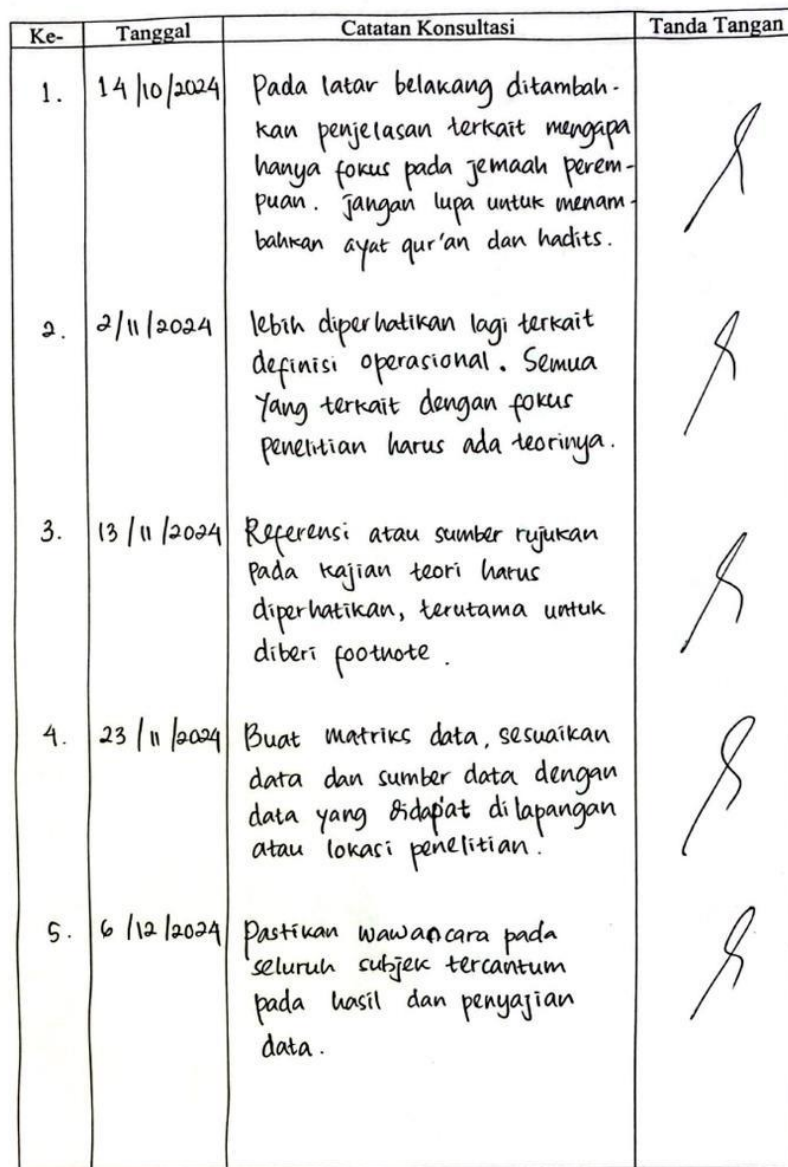 Ke- Tanggal Catatan Konsultasi Tanda Tangan
1. 14/10/2024 Pada latar belakang ditambah-
kan penjelasan terkait mengapa
hanya fokus pada jemaah perem-
puan. Jangan lupa untuk menam-
bahkan ayat qur'an dan hadits.
2. 2/11/2024 lebih diperhatikan lagi terkait
definisi operasional. Semua
Yang terkait dengan fokus
penelitian harus ada teorinya.
3. 13/11/2024 Referensi atau sumber rujukan
pada kajian teori harus
diperhatikan, terutama untuk
diberi footnote.
4. 23/11/2024 Buat matriks data, sesuaikan
data dan sumber data dengan
data yang didapat dilapangan
atau lokasi penelitian.
5. 6/12/2024 Pastikan wawancara pada
seluruh subjek tercantum
pada hasil dan penyajian
data.